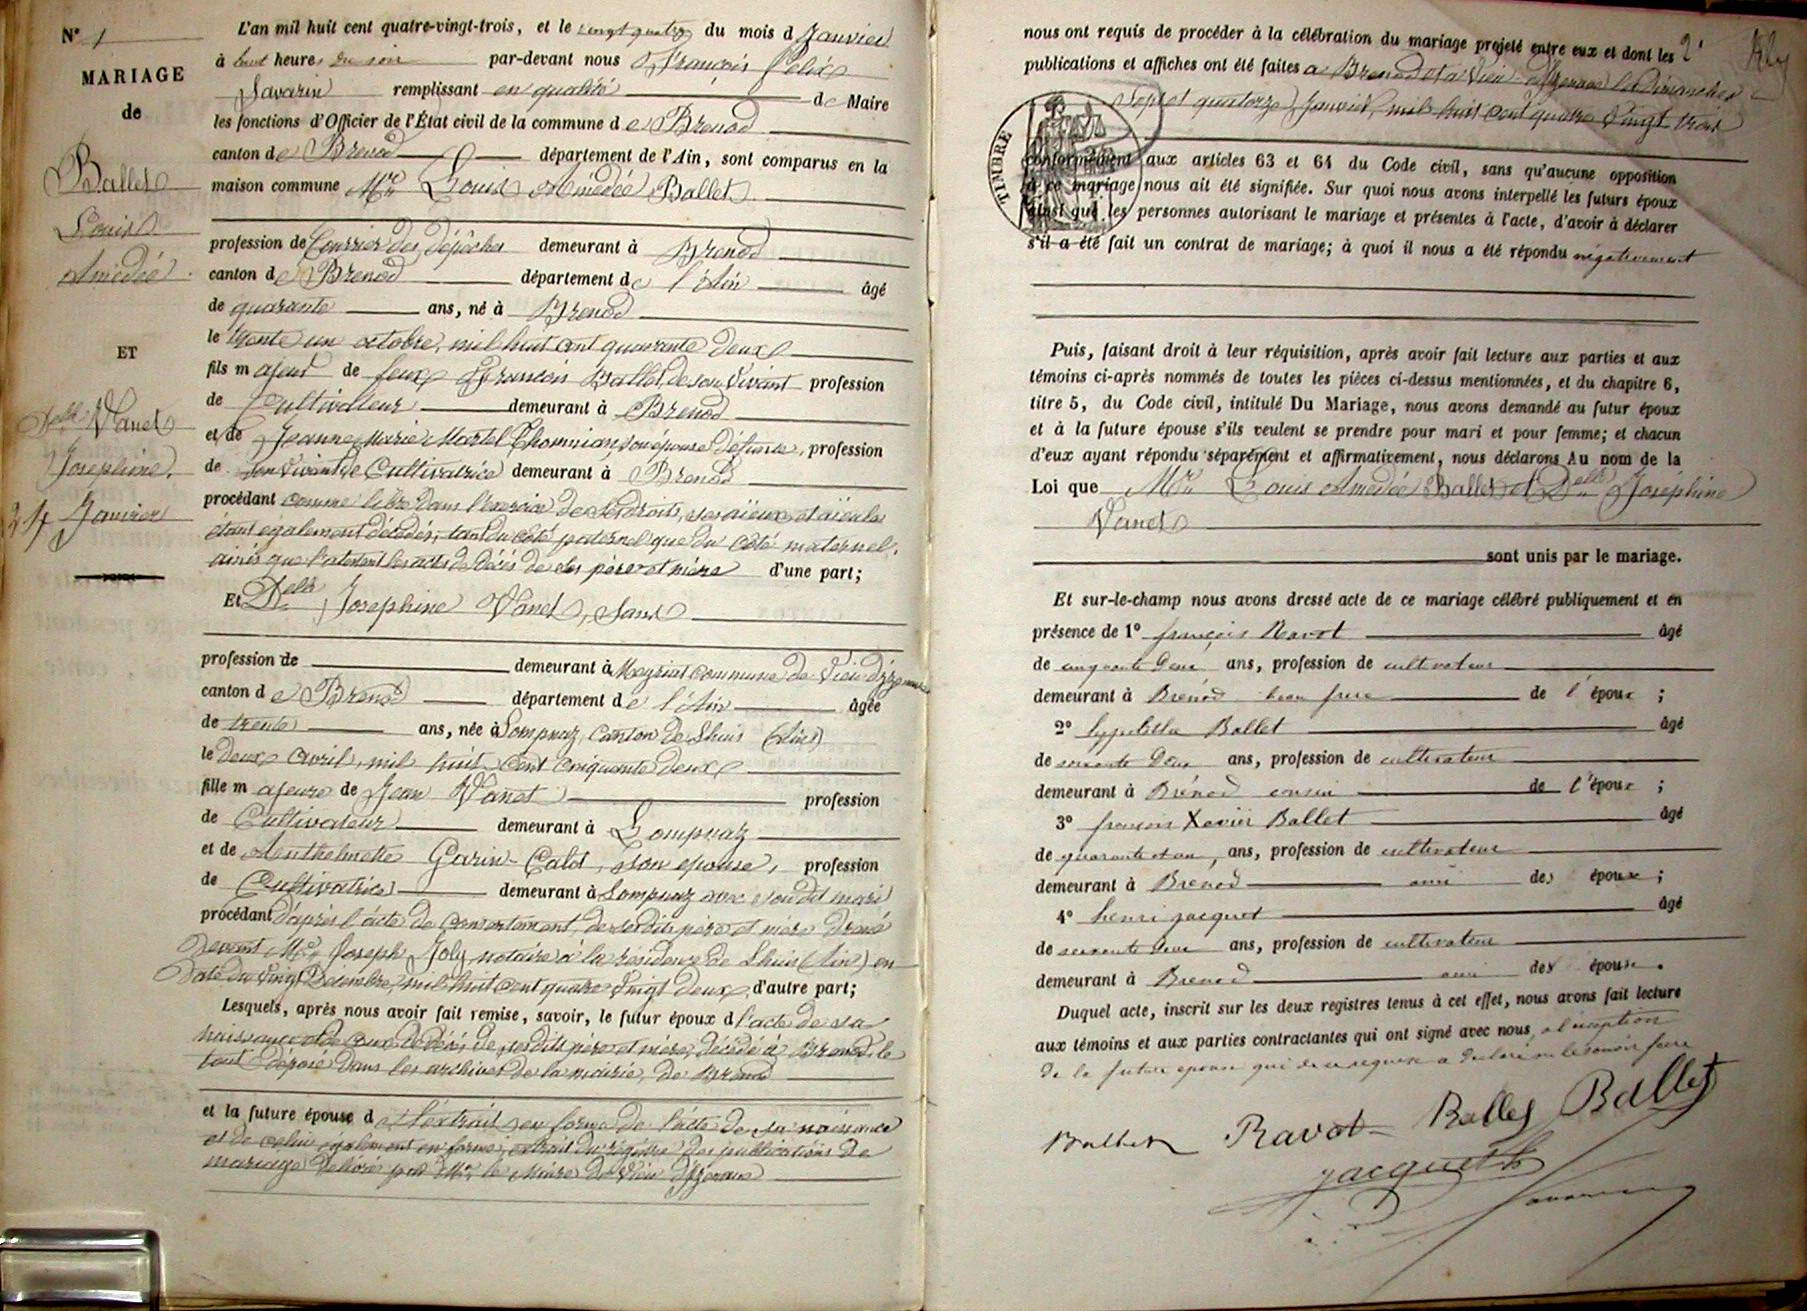 N° 1
MARIAGE
de
Ballet
Louis
Amédée
ET
Delle Vanet
Josephine.
24 Janvier
L'an mil huit cent quatre-vingt-trois, et le vingt quatre du mois d Janvier
à huit heures du soir par-devant nous François Felix
Savarin remplissant en qualité de Maire
les fonctions d'Officier de l'État civil de la commune de Brenod
canton de Brenod département de l'Ain, sont comparus en la
maison commune Mr Louis Amédée Ballet
profession de Courrier des dépêches demeurant à Brenod
canton de Brenod département de l'Ain âgé
de quarante ans, né à Brenod
le trente un octobre, mil huit cent quarante deux
fils majeur de feux François Ballet, de son vivant profession
de Cultivateur demeurant à Brenod
et de Jeanne Marie Martel Thoumian, son épouse défunte, profession
de son vivant de Cultivatrice demeurant à Brenod
procédant comme libre dans l'exercice de ses droits, ses aïeux et aïeules
étant également décédés, tant du côté paternel que du côté maternel,
ainsi que l'attestent les actes de décès de ses père et mère d'une part;
Et Delle Josephine Vanet, sans
profession de demeurant à Meyriat commune de Vieu d'Izenave
canton de Brenod département de l'Ain âgée
de trente ans, née à Lompnaz, canton de Lhuis (Ain)
le deux avril, mil huit cent cinquante deux
fille majeure de Jean Vanet profession
de Cultivateur demeurant à Lompnaz
et de Anthelmette Garin-Calot, son epouse, profession
de Cultivatrice demeurant à Lompnaz avec son dit mari
procédant d'après l'acte de consentement, de ses dits père et mère dressé
devant Me Joseph Joly notaire à la résidence de Lhuis (Ain) en
date du vingt Décembre, mil huit cent quatre vingt deux, d'autre part;
Lesquels, après nous avoir fait remise, savoir, le futur époux d l'acte de sa
naissance et de ceux de décès de ses dits père et mère, décédé à Brenod le
tout déposé dans les archives de la mairie, de Brenod
et la future épouse de l'extrait en forme de l'acte de sa naissance
et de celui également en forme, extrait du régistre des publications de
mariage délivré par Mr le Maire de Vieu d'Izenave
nous ont requis de procéder à la célébration du mariage projeté entre eux et dont les 2
publications et affiches ont été faites à Brenod et à Vieu d'Izenave les Dimanches
Sept et quatorze Janvier, mil huit cent quatre vingt trois
TIMBRE
conformément aux articles 63 et 64 du Code civil, sans qu'aucune opposition
à ce mariage nous ait été signifiée. Sur quoi nous avons interpellé les futurs époux
ainsi que les personnes autorisant le mariage et présentes à l'acte, d'avoir à déclarer
s'il a été fait un contrat de mariage; à quoi il nous a été répondu négativement
Puis, faisant droit à leur réquisition, après avoir fait lecture aux parties et aux
témoins ci-après nommés de toutes les pièces ci-dessus mentionnées, et du chapitre 6,
titre 5, du Code civil, intitulé Du Mariage, nous avons demandé au futur époux
et à la future épouse s'ils veulent se prendre pour mari et pour femme; et chacun
d'eux ayant répondu séparément et affirmativement, nous déclarons Au nom de la
Loi que Mr Louis Amédée Ballet et Delle Joséphine
Vanet
sont unis par le mariage.
Et sur-le-champ nous avons dressé acte de ce mariage célébré publiquement et en
présence de 1° françois Ravot âgé
de cinquante deux ans, profession de cultivateur
demeurant à Brénod beau frere de l'époux ;
2° hyppolithe Ballet âgé
de soixante deux ans, profession de cultivateur
demeurant à Brénod cousin de l'époux ;
3° françois Xavier Ballet âgé
de quarante et un, ans, profession de cultivateur
demeurant à Brénod ami des époux ;
4° henri jacquet âgé
de soixante deux ans, profession de cultivateur
demeurant à Brenod ami des époux .
Duquel acte, inscrit sur les deux registres tenus à cet effet, nous avons fait lecture
aux témoins et aux parties contractantes qui ont signé avec nous, a l'eception
de la future epouse qui de ce requise a declaré ne le savoir faire
Ballet Ravot Ballet Ballet
jacquet h
Savarin